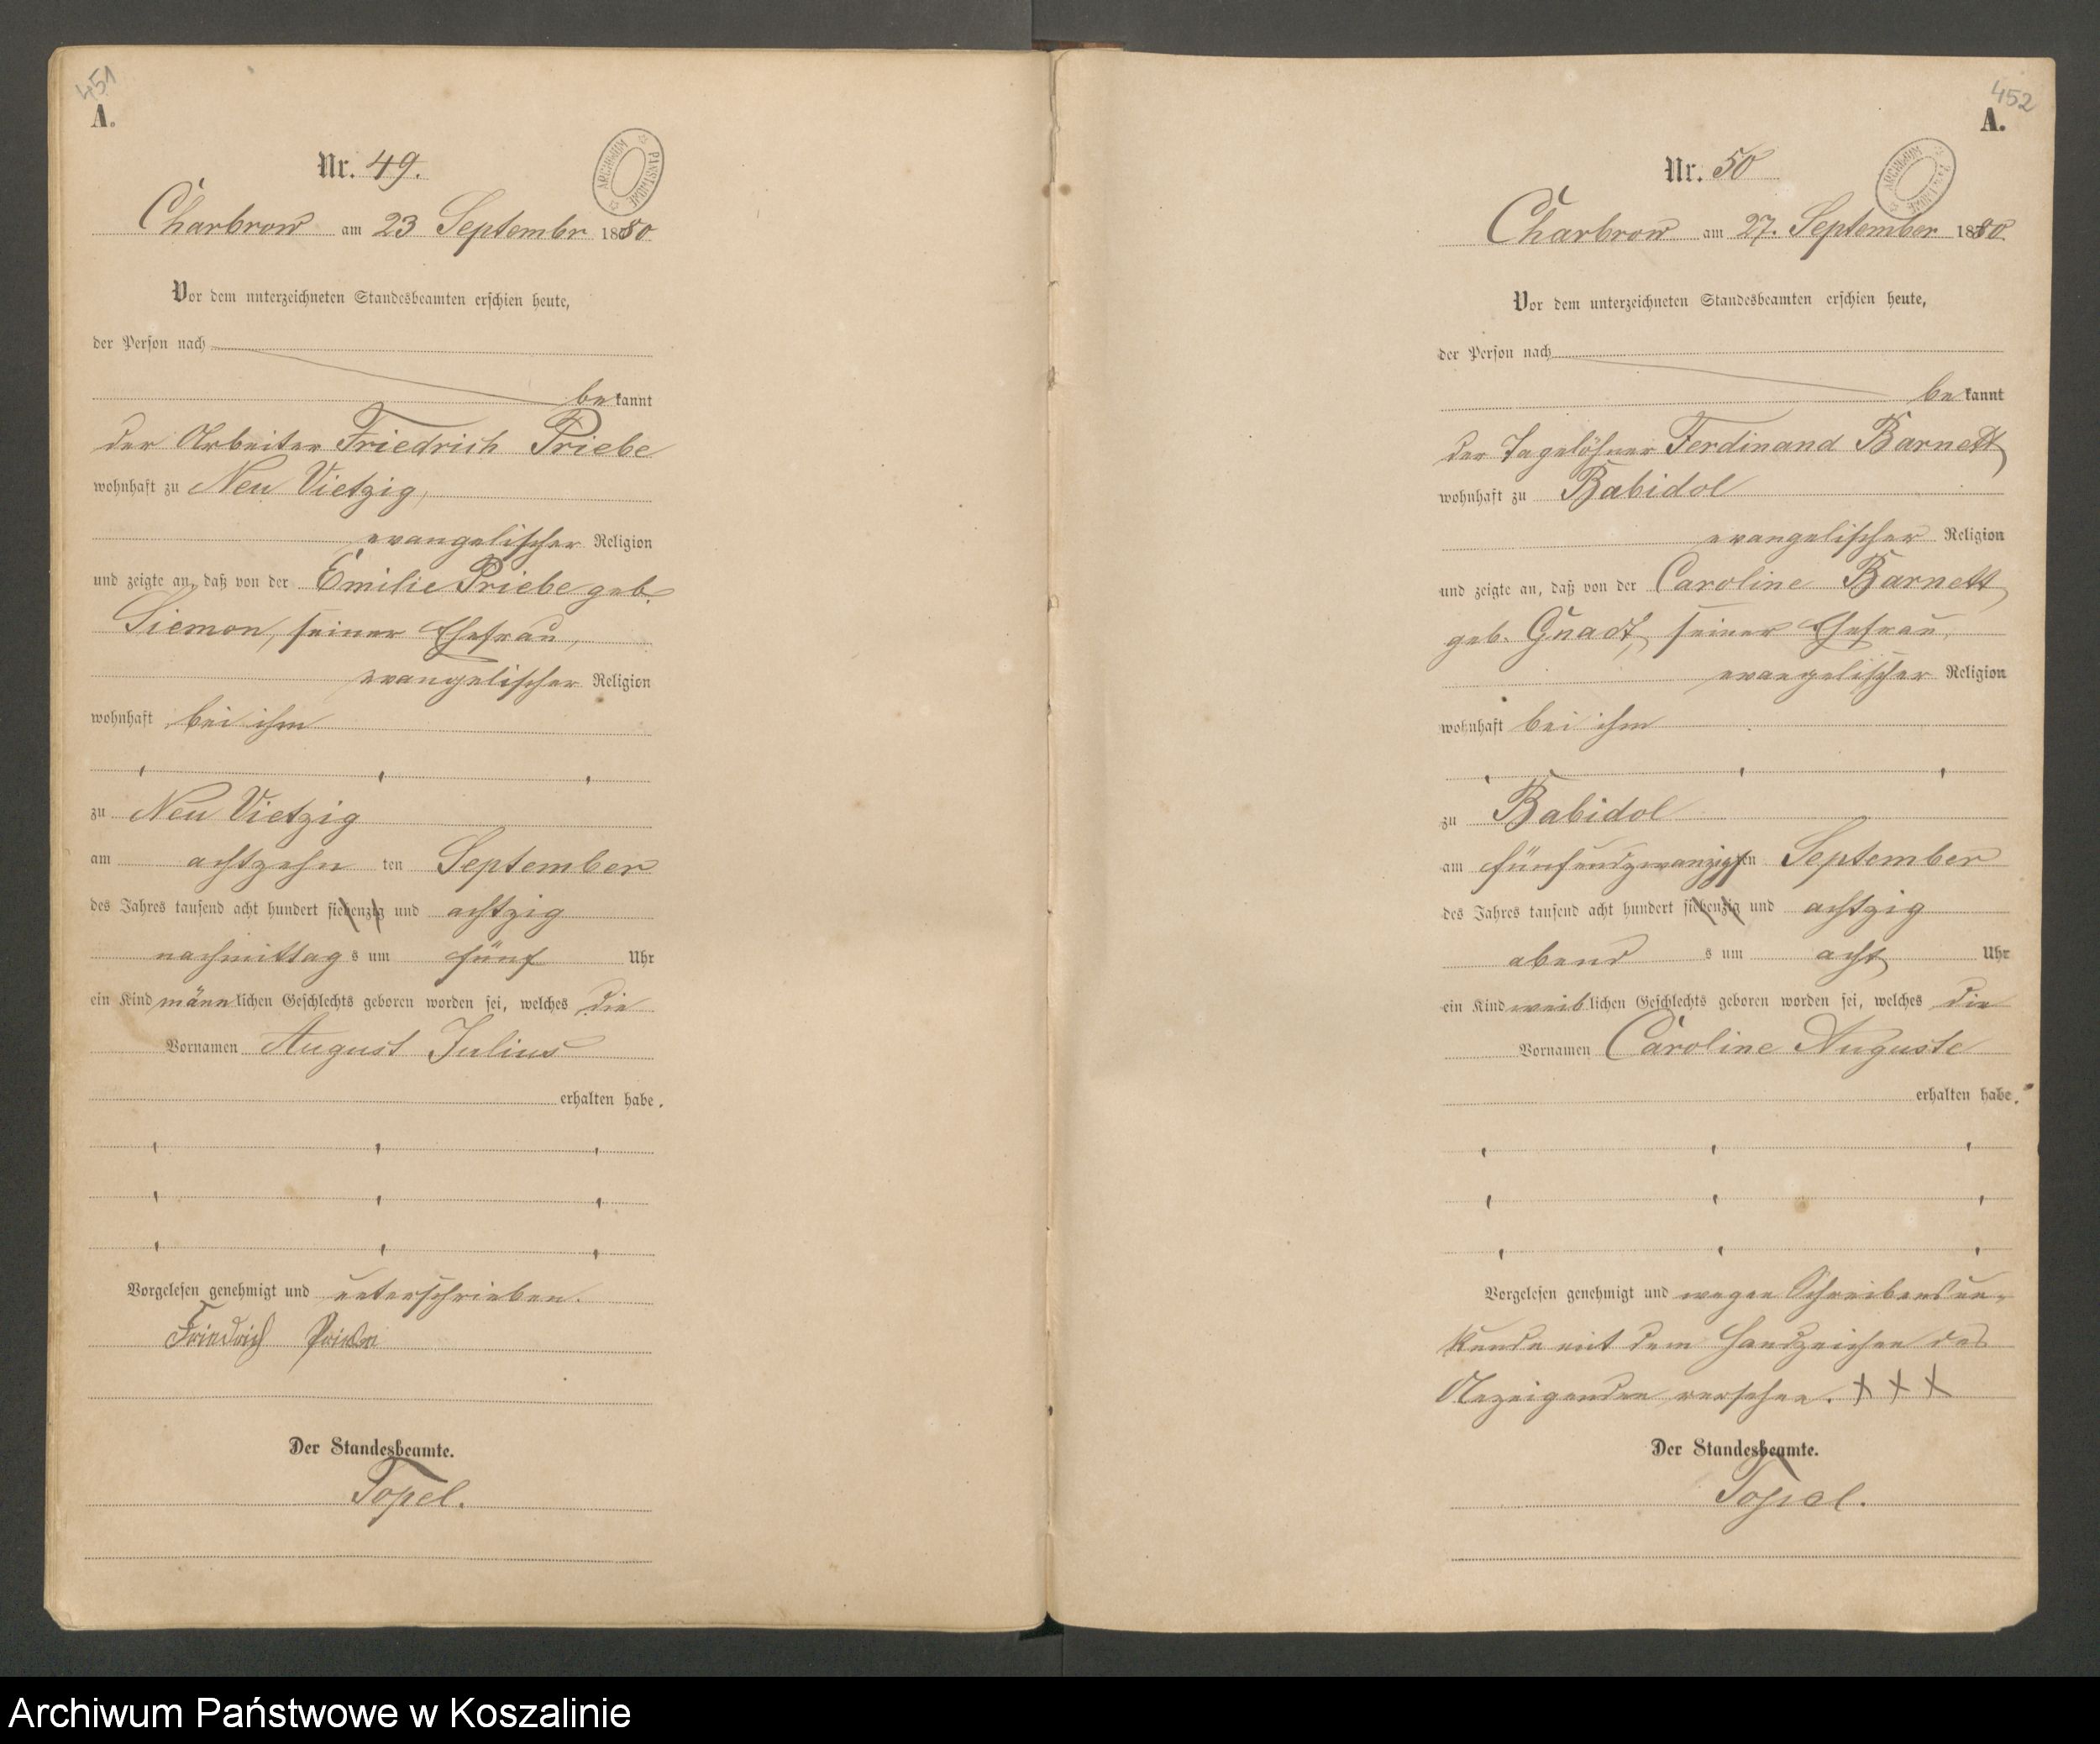 451
A.
ARCHIWUM PAŃSTWOWE
Nr. 49.
Charbrow am 23 Septembr 1880
Vor dem unterzeichneten Standesbeamten erschien heute,
der Person nach
bekannt
der Arbeiter Friedrich Priebe
wohnhaft zu Neu Vietzig,
evangelischer Religion
und zeigte an, daß von der Emilie Priebe geb.
Siemon, seiner Ehefrau,
evangelischer Religion
wohnhaft bei ihm
zu Neu Vietzig
am achtzehn ten September
des Jahres tausend acht hundert siebenzig und achtzig
nachmittags um fünf Uhr
ein Kind männlichen Geschlechts geboren worden sei, welches die
Vornamen August Julius
erhalten habe.
Vorgelesen genehmigt und unterschrieben.
Friedrich Priebe
Der Standesbeamte.
Topel.
452
A.
ARCHIWUM PAŃSTWOWE
Nr. 50
Charbrow am 27. September 1880
Vor dem unterzeichneten Standesbeamten erschien heute,
der Person nach
bekannt
der Tagelöhner Ferdinand Barnett
wohnhaft zu Babidol
evangelischer Religion
und zeigte an, daß von der Caroline Barnett
geb. Gnadt, seiner Ehefrau,
evangelischer Religion
wohnhaft bei ihm
zu Babidol
am fünfundzwanzigsten September
des Jahres tausend acht hundert siebenzig und achtzig
abends um acht Uhr
ein Kind weiblichen Geschlechts geboren worden sei, welches die
Vornamen Caroline Auguste
erhalten habe.
Vorgelesen genehmigt und wegen Schreibensun-
kunde mit dem Handzeichen des
Anzeigenden versehen. + + +
Der Standesbeamte.
Topel.
Archiwum Państwowe w Koszalinie